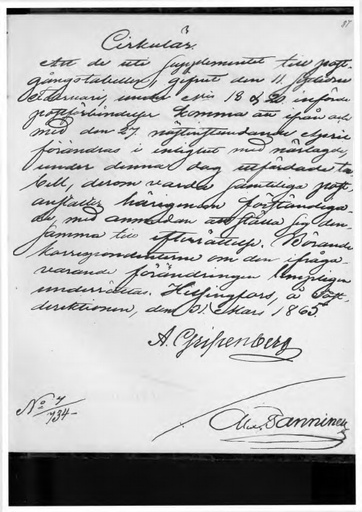 87
Cirkulär.
Att de uti Supplementet till post-
gångstabellen, gifvet den 11 sistlidne
Februari, under N:ris 18 & 20 införde
postförbindelser komma att ifrån och
med den 27 nästinstundande April
förändras i enlighet med närlagde,
under denna dag utfärdade ta-
bell, derom varda samtelige post-
anstalter härigenom förständiga-
de, med anmodan att ställa sig den-
samma till efterrättelse. Börande
korrespondenterne om den ifråga-
varande förändringen lämpligen
underrättas. Helsingfors, å Post-
direktionen, den 31 Mars 1865.
A. Gripenberg
No 7/734
Tanninen